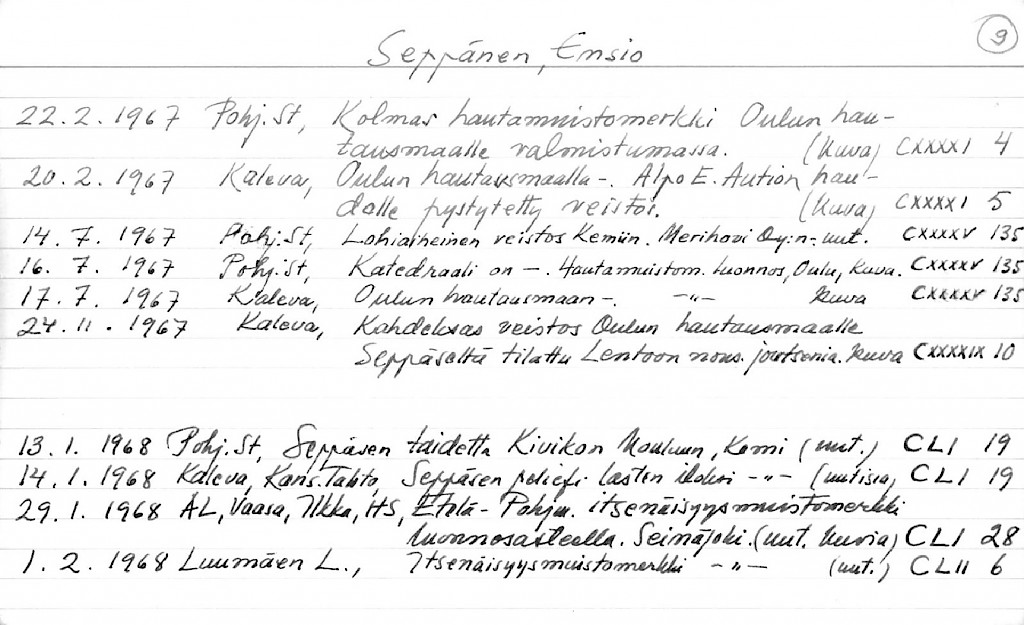 9
Seppänen, Ensio
22.2.1967 Pohj.St, Kolmas hautamuistomerkki Oulun hau-
tausmaalle valmistumassa. (Kuva) CXXXXI 4
20.2.1967 Kaleva, Oulun hautausmaalla-. Alpo E. Aution hau-
dalle pystytetty veistos. (Kuva) CXXXXI 5
14.7.1967 Pohj.St, Lohiaiheinen veistos Kemiin. Merihovi Oy:n-uut. CXXXXV 135
16.7.1967 Pohj.St, Katedraali on -. Hautamuistom. luonnos, Oulu, Kuva. CXXXXV 135
17.7.1967 Kaleva, Oulun hautausmaan-. -"- Kuva CXXXXV 135
24.11.1967 Kaleva, Kahdeksas veistos Oulun hautausmaalle
Seppäseltä tilattu Lentoon nous. joutsenia. Kuva CXXXXIX 10
13.1.1968 Pohj.St, Seppäsen taidetta Kivikon Kouluun, Kemi (uut.) CLI 19
14.1.1968 Kaleva, Kans.Tahto, Seppäsen reliefi lasten iloksi -"- (uutisia) CLI 19
29.1.1968 AL, Vaasa, Ilkka, HS, Etelä-Pohjm. itsenäisyysmuistomerkki
luonnosasteella. Seinäjoki. (uut. Kuvia) CLI 28
1.2.1968 Luumäen L., Itsenäisyysmuistomerkki -"- (uut.) CLII 6